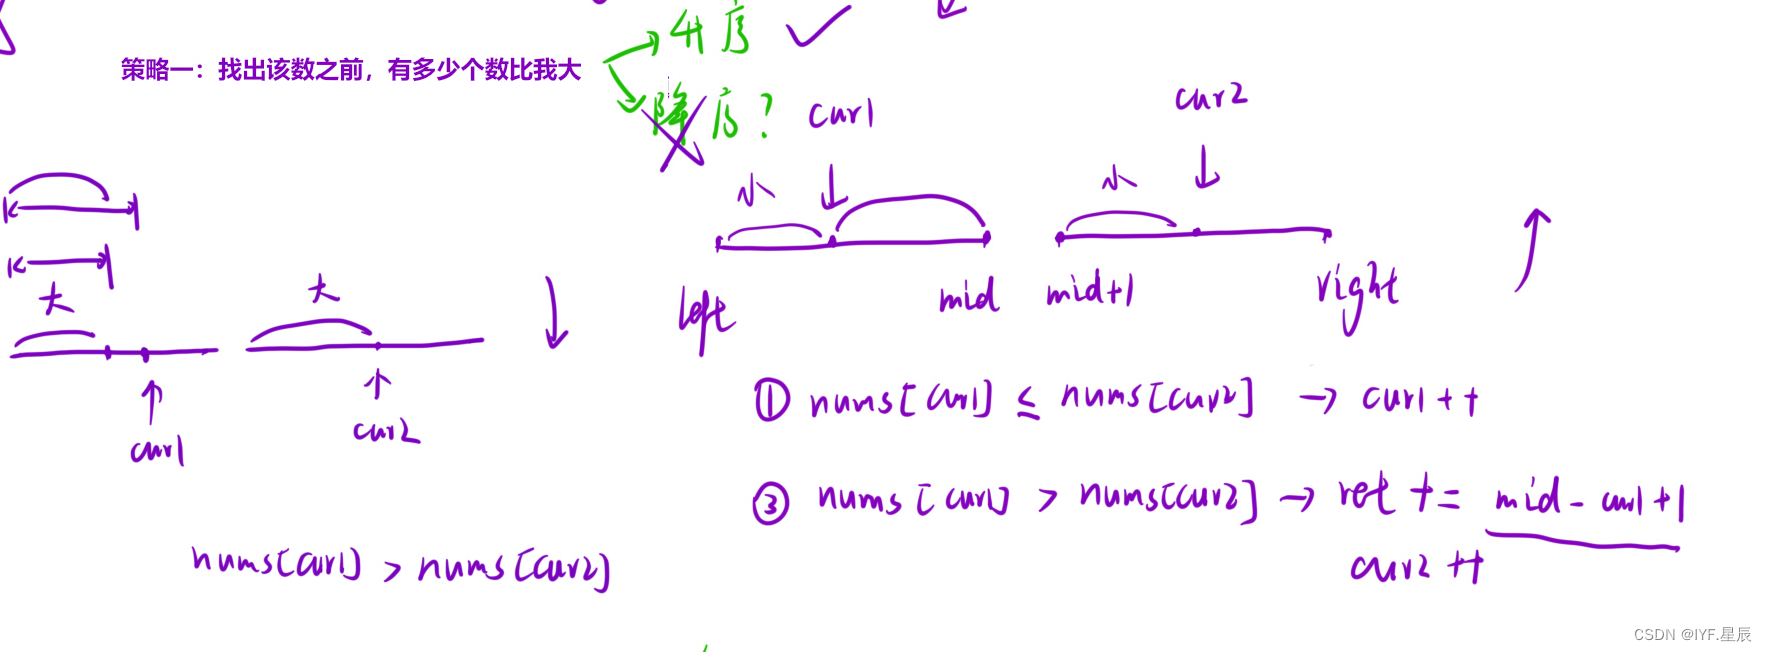 升序
策略一：找出该数之前，有多少个数比我大
降序？
cur1
cur2
小
小
大
大
left
mid
mid+1
right
cur1
cur2
① nums[cur1] ≤ nums[cur2] → cur1++
③ nums[cur1] > nums[cur2] → ret += mid - cur1 + 1
cur2++
nums[cur1] > nums[cur2]
CSDN @IYF.星辰